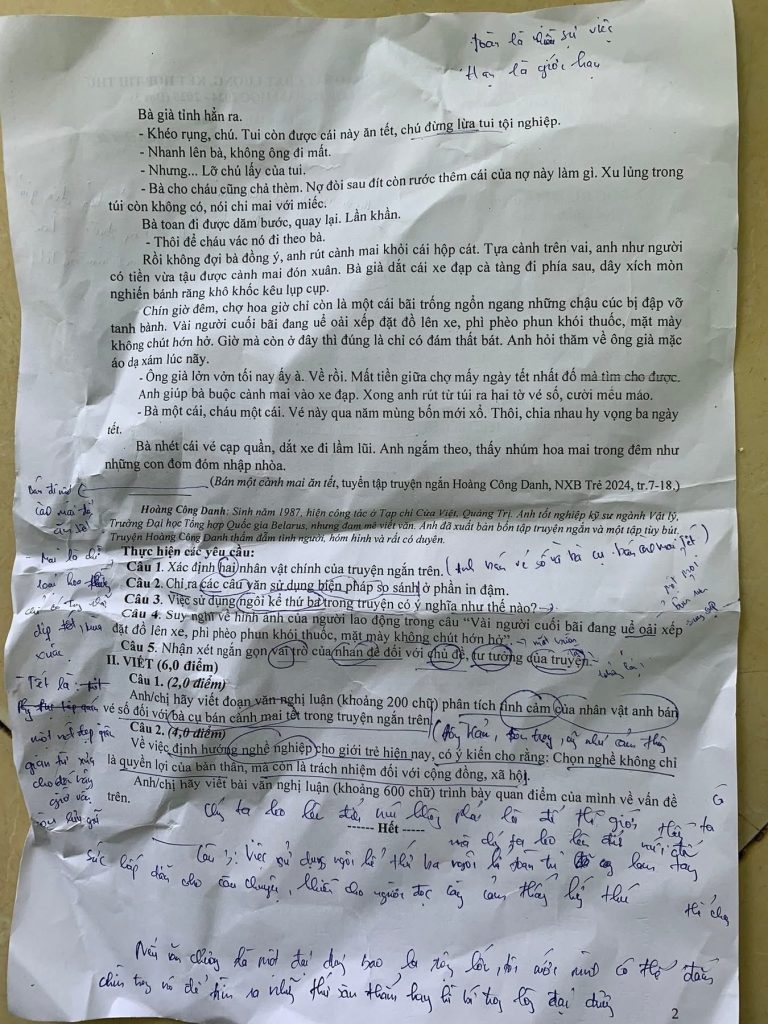 toàn là hiện sự việc
Hạn là giới hạn
Bà già tỉnh hẳn ra.
- Khéo rụng, chú. Tui còn được cái này ăn tết, chú đừng lừa tui tội nghiệp.
- Nhanh lên bà, không ông đi mất.
- Nhưng... Lỡ chú lấy của tui.
- Bà cho cháu cũng chả thèm. Nợ đòi sau đít còn rước thêm cái của nợ này làm gì. Xu lủng trong
túi còn không có, nói chi mai với miếc.
Bà toan đi được dăm bước, quay lại. Lần khần.
- Thôi để cháu vác nó đi theo bà.
Rồi không đợi bà đồng ý, anh rút cành mai khỏi cái hộp cát. Tựa cành trên vai, anh như người
có tiền vừa tậu được cành mai đón xuân. Bà già dắt cái xe đạp cà tàng đi phía sau, dây xích mòn
nghiến bánh răng khô khốc kêu lụp cụp.
Chín giờ đêm, chợ hoa giờ chỉ còn là một cái bãi trống ngổn ngang những chậu cúc bị đập vỡ
tanh bành. Vài người cuối bãi đang uể oải xếp đặt đồ lên xe, phì phèo phun khói thuốc, mặt mày
không chút hớn hở. Giờ mà còn ở đây thì đúng là chỉ có đám thất bát. Anh hỏi thăm về ông già mặc
áo dạ xám lúc nãy.
- Ông già lởn vởn tối nay ấy à. Về rồi. Mất tiền giữa chợ mấy ngày tết nhất đố mà tìm cho được.
Anh giúp bà buộc cành mai vào xe đạp. Xong anh rút từ túi ra hai tờ vé số, cười mếu máo.
- Bà một cái, cháu một cái. Vé này qua năm mùng bốn mới xổ. Thôi, chia nhau hy vọng ba ngày
tết.
Bà nhét cái vé cạp quần, dắt xe đi lầm lũi. Anh ngắm theo, thấy nhúm hoa mai trong đêm như
những con đom đóm nhập nhòa.
(Bán một cành mai ăn tết, tuyển tập truyện ngắn Hoàng Công Danh, NXB Trẻ 2024, tr.7-18.)
Hoàng Công Danh: Sinh năm 1987, hiện công tác ở Tạp chí Cửa Việt, Quảng Trị. Anh tốt nghiệp kỹ sư ngành Vật lý,
Trường Đại học Tổng hợp Quốc gia Belarus, nhưng đam mê viết văn. Anh đã xuất bản bốn tập truyện ngắn và một tập tùy bút.
Truyện Hoàng Công Danh thấm đẫm tình người, hóm hỉnh và rất có duyên.
Thực hiện các yêu cầu:
Câu 1. Xác định hai nhân vật chính của truyện ngắn trên.
Câu 2. Chỉ ra các câu văn sử dụng biện pháp so sánh ở phần in đậm.
Câu 3. Việc sử dụng ngôi kể thứ ba trong truyện có ý nghĩa như thế nào?
Câu 4. Suy nghĩ về hình ảnh của người lao động trong câu “Vài người cuối bãi đang uể oải xếp
đặt đồ lên xe, phì phèo phun khói thuốc, mặt mày không chút hớn hở”.
Câu 5. Nhận xét ngắn gọn vai trò của nhan đề đối với chủ đề, tư tưởng của truyện.
II. VIẾT (6,0 điểm)
Câu 1. (2,0 điểm)
Anh/chị hãy viết đoạn văn nghị luận (khoảng 200 chữ) phân tích tình cảm của nhân vật anh bán
vé số đối với bà cụ bán cành mai tết trong truyện ngắn trên.
Câu 2. (4,0 điểm)
Về việc định hướng nghề nghiệp cho giới trẻ hiện nay, có ý kiến cho rằng: Chọn nghề không chỉ
là quyền lợi của bản thân, mà còn là trách nhiệm đối với cộng đồng, xã hội.
Anh/chị hãy viết bài văn nghị luận (khoảng 600 chữ) trình bày quan điểm của mình về vấn đề
trên.
------ Hết ------
Chúng ta leo lên đỉnh núi không phải là để thế giới thấy ta
mà chúng ta leo lên đỉnh núi để
Câu 3: Việc sử dụng ngôi kể thứ ba làm tăng
sức hấp dẫn cho câu chuyện, khiến cho người đọc càng cảm thấy hứng thú
Nếu văn chương là một đại dương bao la rộng lớn, tôi ước mình có thể đắm
chìm trong nó để tìm ra những thứ
2